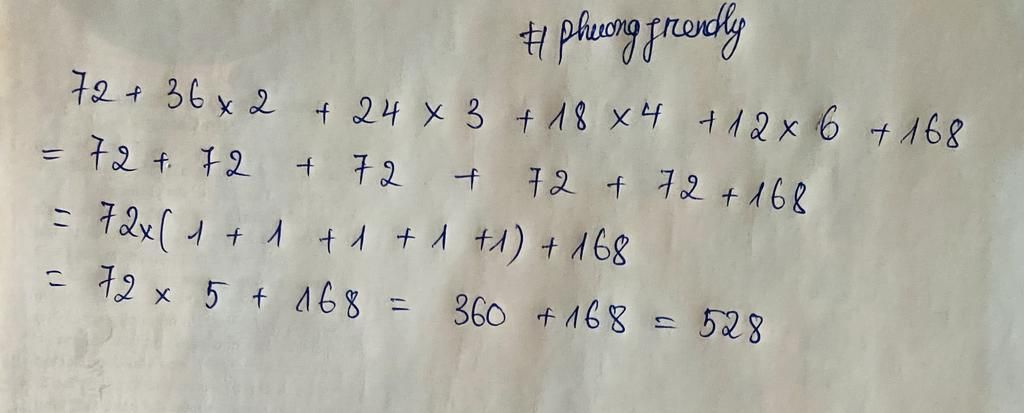 # phuong friendly
72 + 36 x 2 + 24 x 3 + 18 x 4 + 12 x 6 + 168
= 72 + 72 + 72 + 72 + 72 + 168
= 72x( 1 + 1 + 1 + 1 +1) + 168
= 72 x 5 + 168 = 360 + 168 = 528